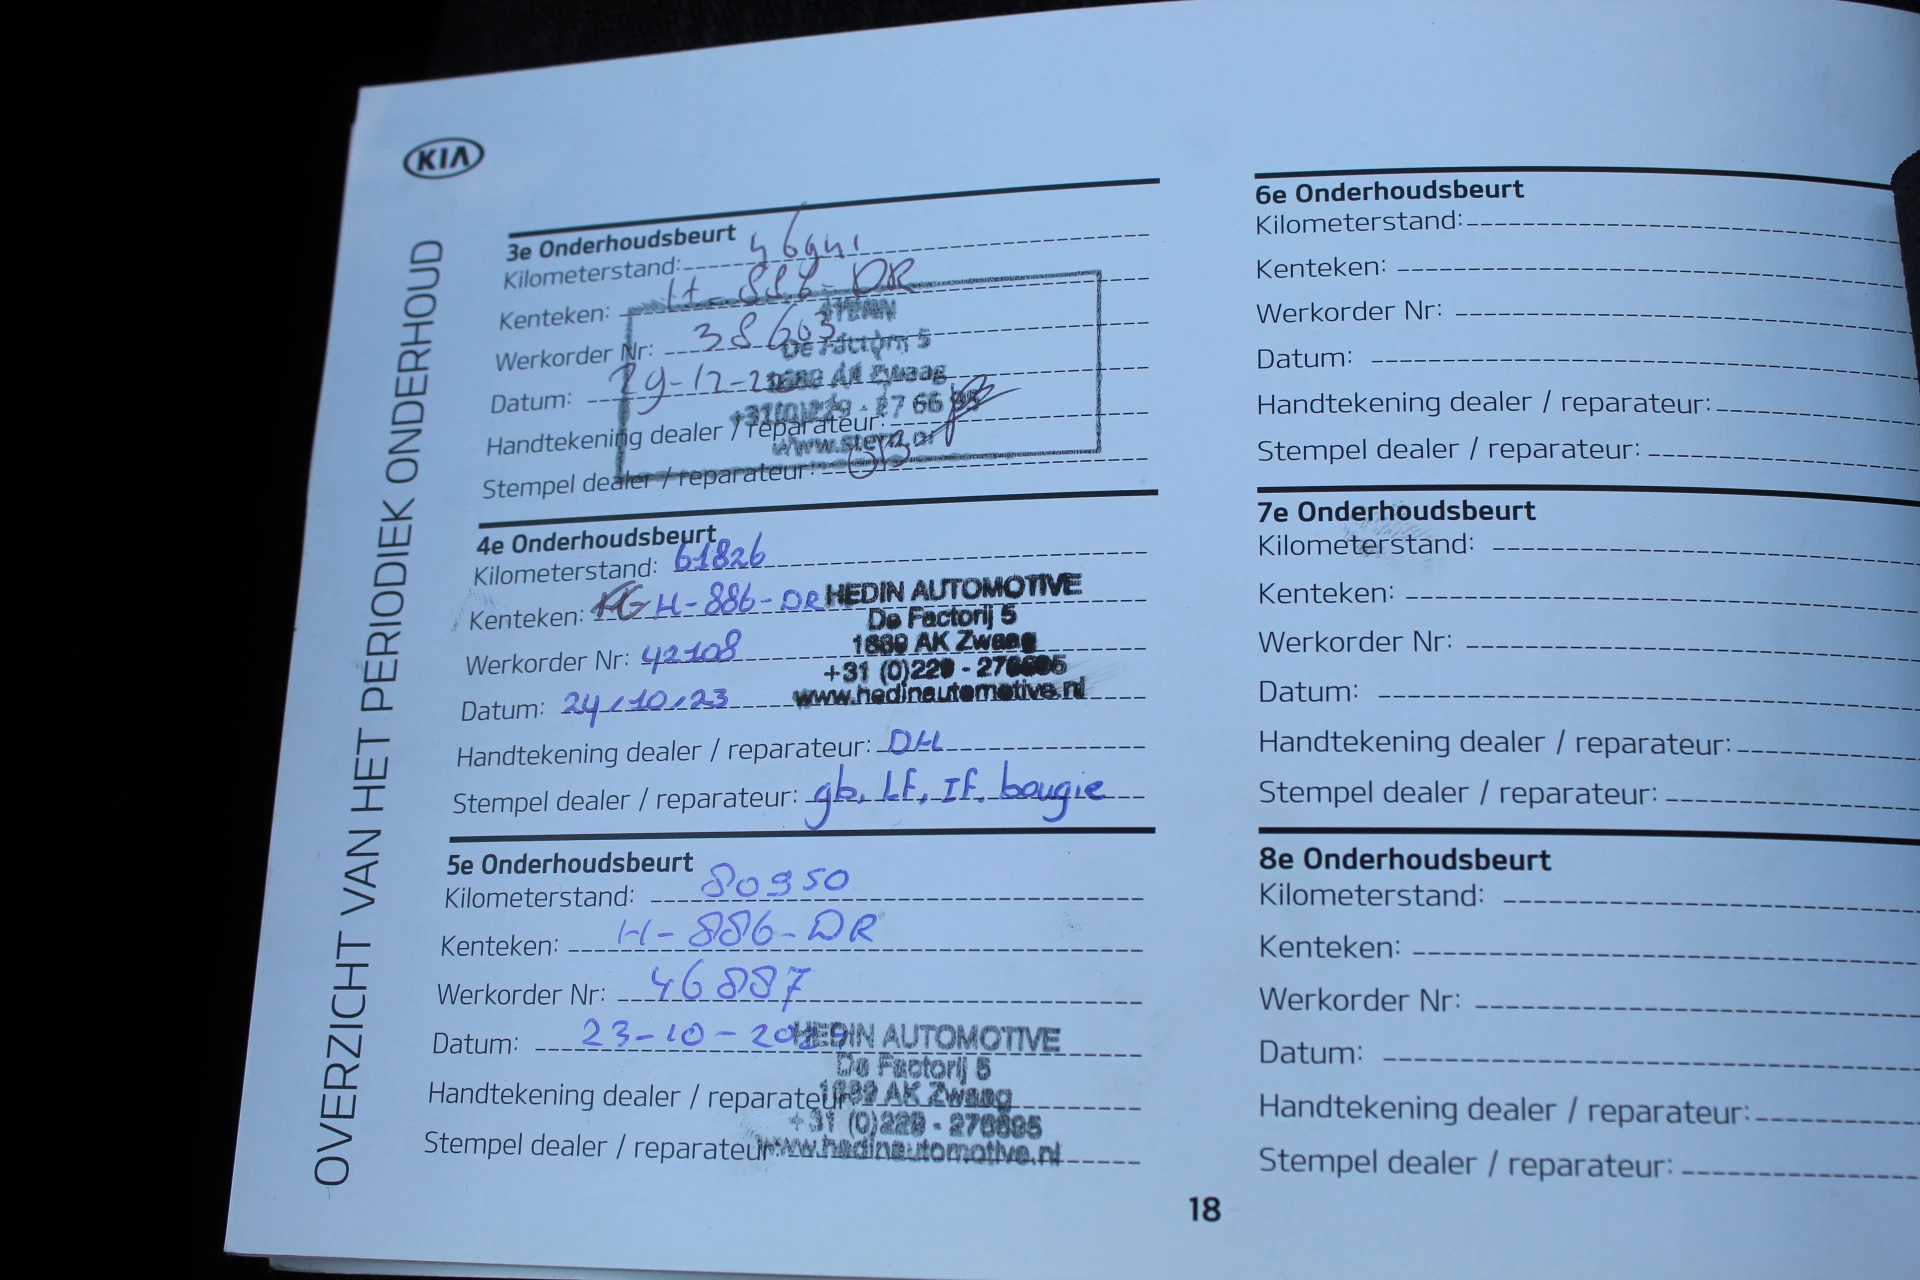 KIA
OVERZICHT VAN HET PERIODIEK ONDERHOUD
3e Onderhoudsbeurt
Kilometerstand: 46941
Kenteken: H-886-DR
Werkorder Nr: 38603
Datum: 29-12-
Handtekening dealer / reparateur:
Stempel dealer / reparateur:
STERN
De Factorij 5
AK Zwaag
4e Onderhoudsbeurt
Kilometerstand: 61826
Kenteken: H-886-DR
Werkorder Nr: 42108
Datum: 24/10/23
Handtekening dealer / reparateur: DH
Stempel dealer / reparateur: gb, LF, IF. bougie
HEDIN AUTOMOTIVE
De Factorij 5
1689 AK Zwaag
+31 (0)229 - 276695
www.hedinautomotive.nl
5e Onderhoudsbeurt
Kilometerstand: 80950
Kenteken: H-886-DR
Werkorder Nr: 46887
Datum: 23-10-2024
Handtekening dealer / reparateur:
Stempel dealer / reparateur:
HEDIN AUTOMOTIVE
De Factorij 5
1689 AK Zwaag
+31 (0)229 - 276695
www.hedinautomotive.nl
6e Onderhoudsbeurt
Kilometerstand:
Kenteken:
Werkorder Nr:
Datum:
Handtekening dealer / reparateur:
Stempel dealer / reparateur:
7e Onderhoudsbeurt
Kilometerstand:
Kenteken:
Werkorder Nr:
Datum:
Handtekening dealer / reparateur:
Stempel dealer / reparateur:
8e Onderhoudsbeurt
Kilometerstand:
Kenteken:
Werkorder Nr:
Datum:
Handtekening dealer / reparateur:
Stempel dealer / reparateur:
18